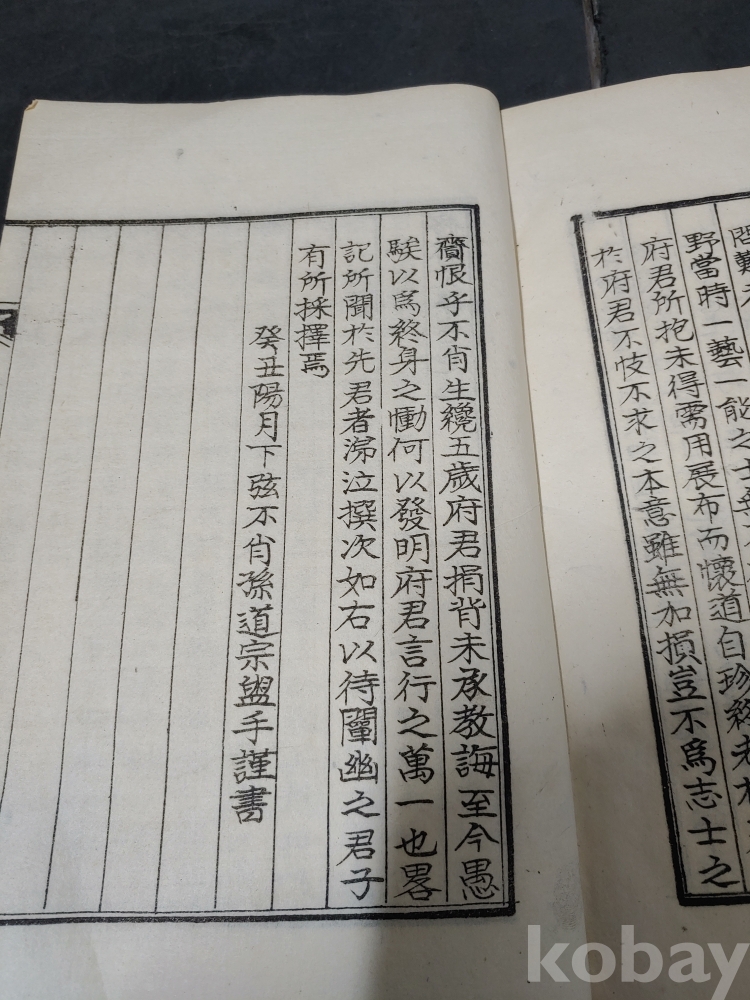 野當時一藝一能之士
府君所抱未得需用展布而懷道自珍終老
於府君不忮不求之本意雖無加損豈不爲志士之
齎恨乎不肖生纔五歲府君捐背未承教誨至今愚
騃以爲終身之慟何以發明府君言行之萬一也畧
記所聞於先君者涕泣撰次如右以待闡幽之君子
有所採擇焉
癸丑陽月下弦不肖孫道宗盥手謹書
kobay